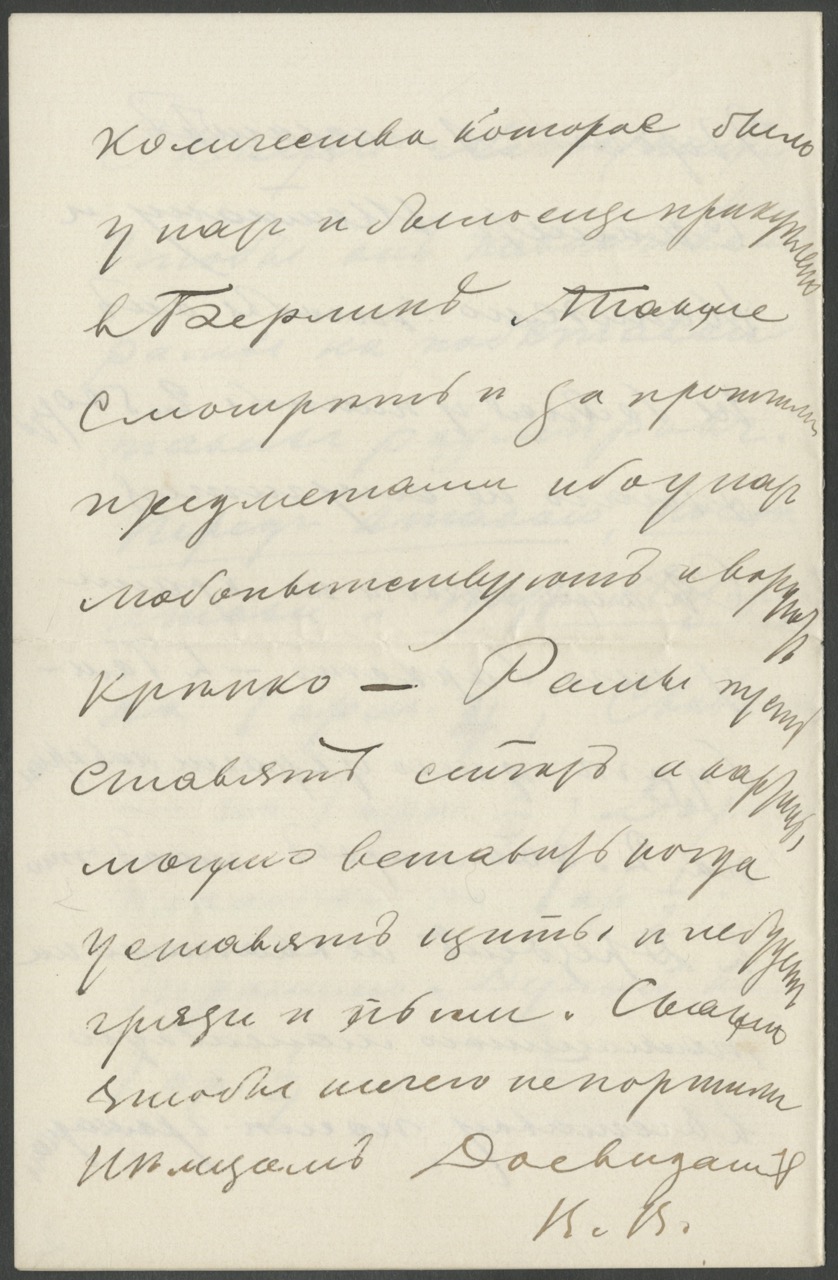 количества которое было
у нас и было еще прикуплено
в Берлинѣ. Также
смотрѣть и за прочими
предметами ибо у нас
любопытствуютъ и воруютъ
крѣпко — Рамы пусть
ставлятъ сейчасъ а картины
можно вставить когда
уставлятъ щиты и не будетъ
грязи и пыли. Сказано
чтобы ничего не портили
нѣмцамъ Досвиданiя
К. К.